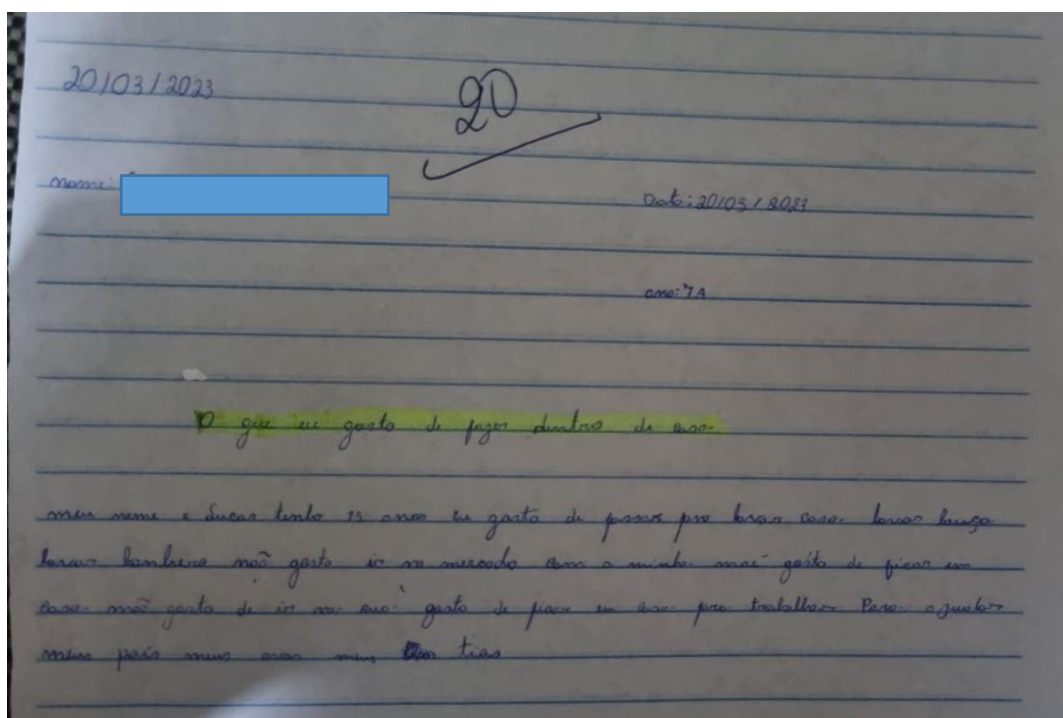 20/03/2023
20
nome:
Data: 20/03/2023
ano: 7A
O que eu gosto de fazer dentro de casa
meu nome e Lucas tenho 15 anos eu gosto de passar pro lavar casa lavar louça
lavar banhero não gosto ir no mercado com a minha mãe gosto de ficar em
casa não gosto de ir na gosto de ficar em casa pra trabalhar Para ajudar
meus pais meus meus tias